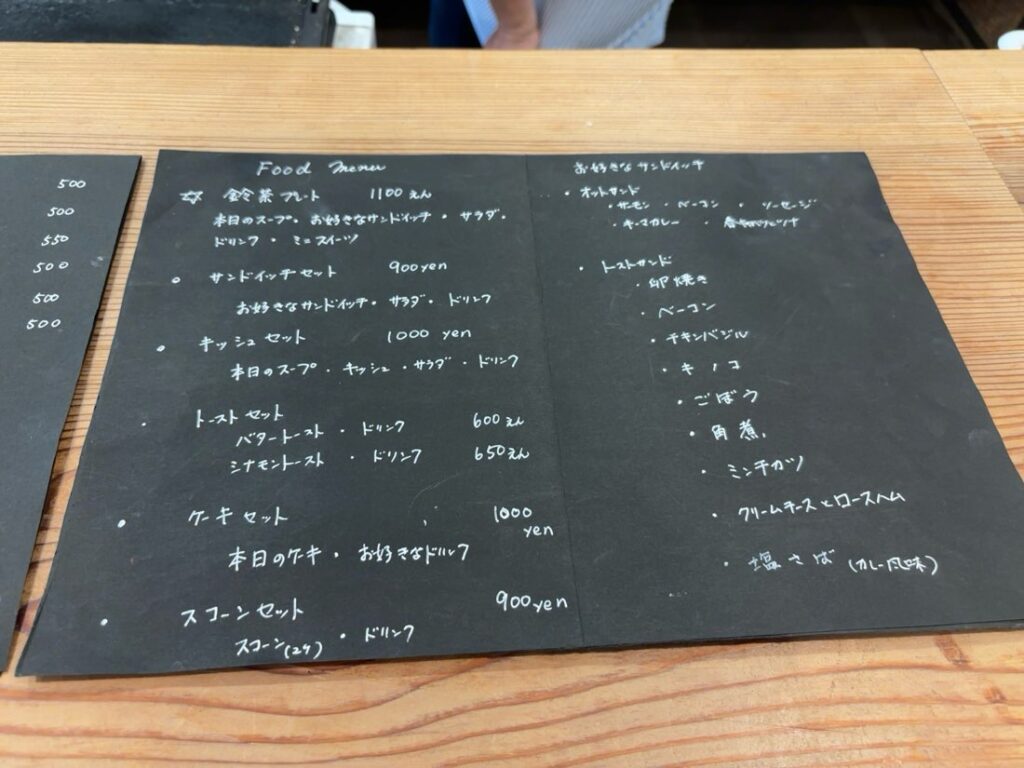 500
500
550
500
500
500
Food menu
☆ 鈴茶プレート 1100えん
本日のスープ・お好きなサンドイッチ・サラダ・
ドリンク・ミニスイーツ
・サンドイッチセット 900yen
お好きなサンドイッチ・サラダ・ドリンク
・キッシュセット 1000 yen
本日のスープ・キッシュ・サラダ・ドリンク
・トーストセット
バタートースト・ドリンク 600えん
シナモントースト・ドリンク 650えん
・ケーキセット 1000
yen
本日のケーキ・お好きなドリンク
・スコーンセット 900yen
スコーン(2ケ)・ドリンク
お好きなサンドイッチ
・ホットサンド
・サーモン・ベーコン・ソーセージ
・キーマカレー・
・トーストサンド
・卵焼き
・ベーコン
・チキンバジル
・キノコ
・ごぼう
・角煮
・ミンチカツ
・クリームチーズとロースハム
・塩さば(カレー風味)